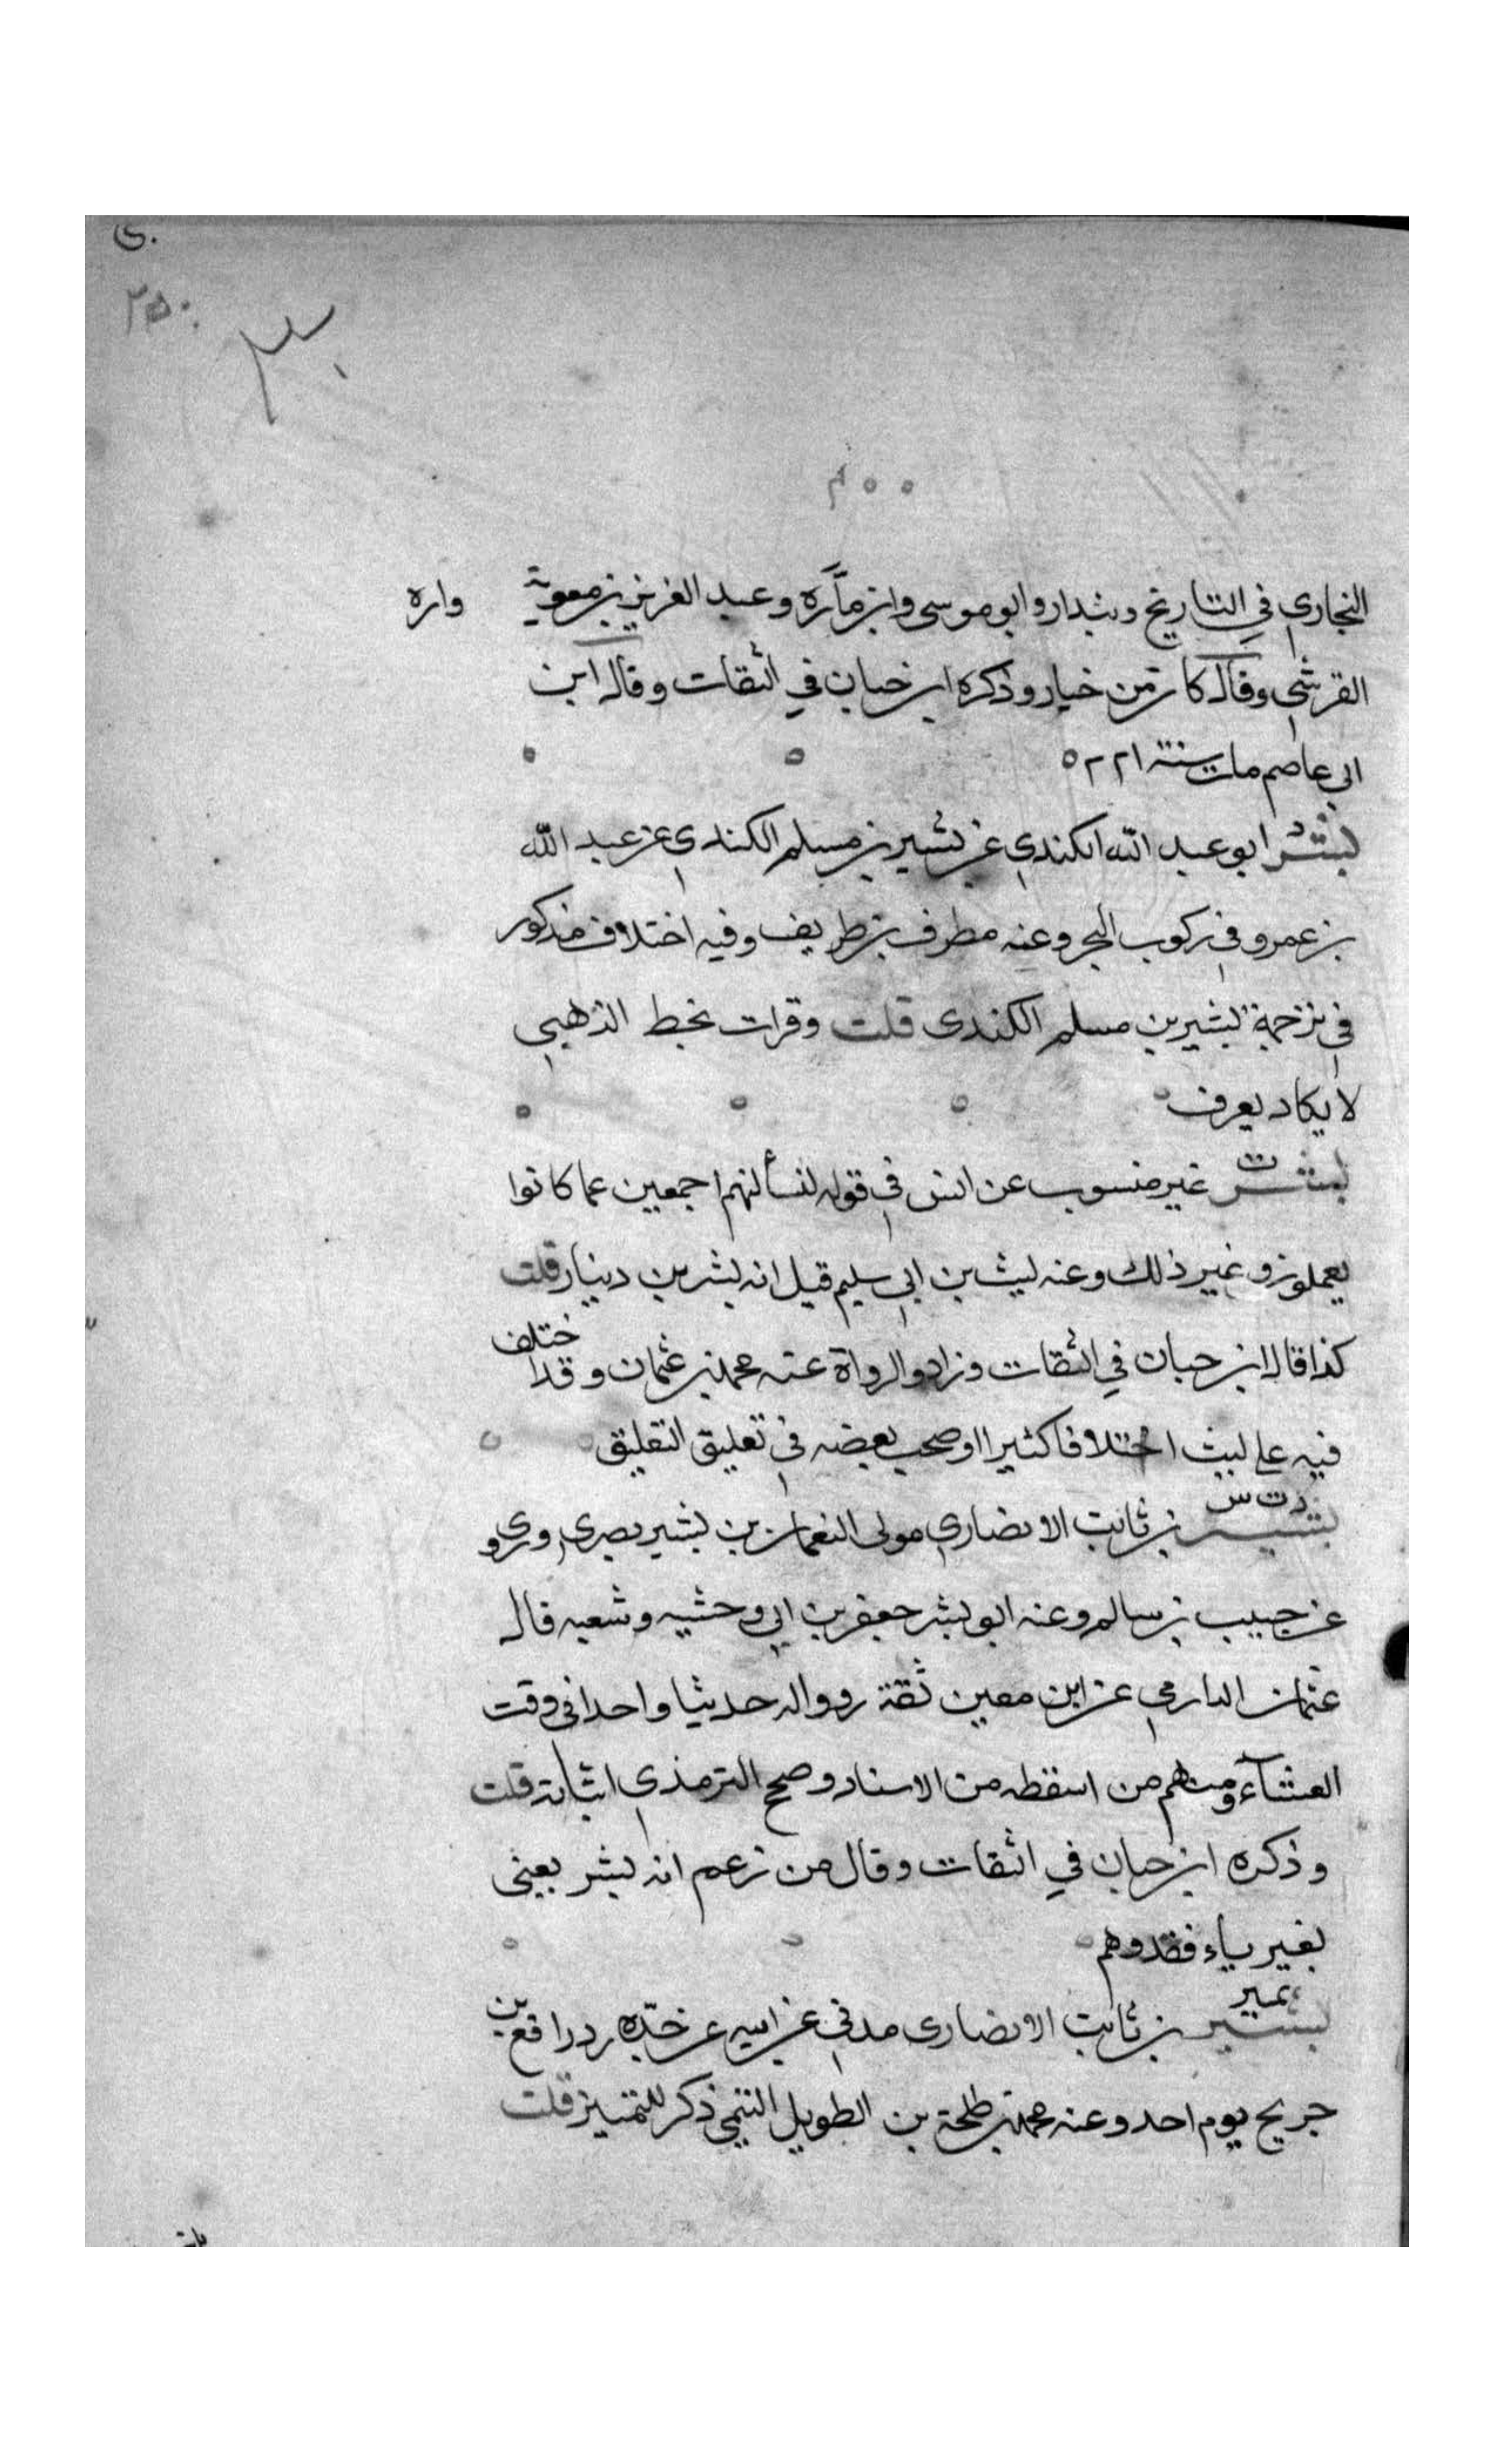 ٢٥٠
البخاري في التاريخ وبندار وابو موسى وابن مآره وعبد العزيز بن معوية واره
القرشي وقال كان من خيار وذكره ابن حبان في الثقات وقال ابن
ابي عاصم مات سنة ٢٢١ ه
بشر ابو عبد الله الكندي عن بشير بن مسلم الكندي عن عبد الله
بن عمرو في ركوب البحر وعنه مطرف بن طريف وفيه اختلاف مذكور
في ترجمة بشير بن مسلم الكندي قلت وقرات بخط الذهبي
لا يكاد يعرف
ت
بشر غير منسوب عن انس في قوله لنسألنهم اجمعين عما كانوا
يعملون و غير ذلك وعنه ليث بن ابي سليم قيل انه بشر بن دينار قلت
كذا قال ابن حبان في الثقات وزاد والرواة عنه محمد بن عثمان وقد اختلف
فيه على ليث اختلافا كثيرا اوضحت بعضه في تعليق التعليق
د ت س
بشير بن ثابت الانصاري مولى النعمان بن بشير بصري وروى
عن حبيب بن سالم وعنه ابو بشر جعفر بن ابي وحشيه وشعبه قال
عثمان الدارمي عن ابن معين ثقة رووا له حديثا واحدا في وقت
العشآء ومنهم من اسقطه من الاسناد وصحح الترمذي اثباته قلت
وذكره ابن حبان في الثقات وقال من زعم انه بشر يعني
بغير ياء فقد وهم
تمييز
بشير بن ثابت الانصاري مدني عن ابيه عن جدّه رد رافع بن
جريح يوم احد وعنه محمد بن طلحة بن الطويل التيمي ذكر للتمييز قلت